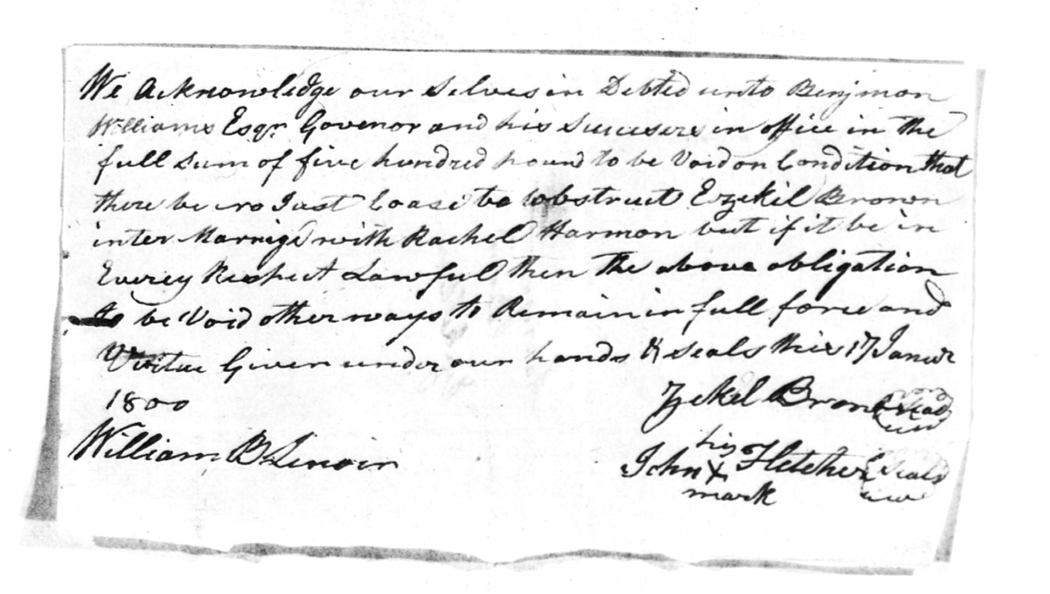 We Acknowledge our Selves in Debted unto Benjmon
Williams Esqr. Govenor and his Sucusers in office in the
full Sum of five hundred pound to be Void on Condition that
there be no Just Coase to obstruct Ezekil Brown
inter Marrige with Rachel Harmon but if it be in
Everey Respect Lawful then the above obligation
to be Void other ways to Remain in full force and
Virtue Given under our hands & Seals this 17 Januer
1800
Ezekil Brown Seal
William B Lenoir
his
John X Fletcher Seal
mark